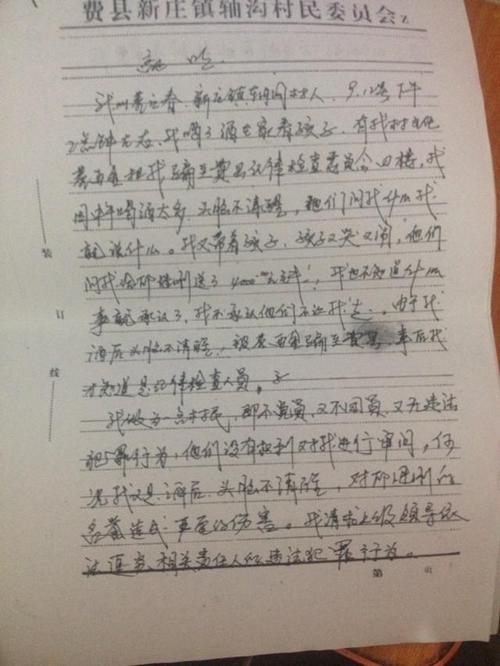 费县新庄镇轴沟村民委员会
说明
我叫 春、新庄镇轴沟村人、9.12号下午
2点钟左右、我喝了酒在家看孩子、有我村书记
把我骗至费县纪律检查委员会四楼,我
因中午喝酒太多、头脑不清醒,他们问我什么我
就说什么。我又带着孩子,孩子又哭又闹,他们
问我给 送了4000 元 ,我也不知道什么
事就承认了,我不承认他们不让我走。由于我
酒后头脑不清醒,被 骗至费县,事后我
才知道是纪律检查人员。
我做为一名村民,即不党员,又不团员,又无违法
犯罪行为,他们没有权利对我进行审问,何
况我又是酒后、头脑不清醒,对
名誉造成严重的伤害。我请求上级领导依
法追究相关责任人的违法犯罪行为。
第 页
装
订
线